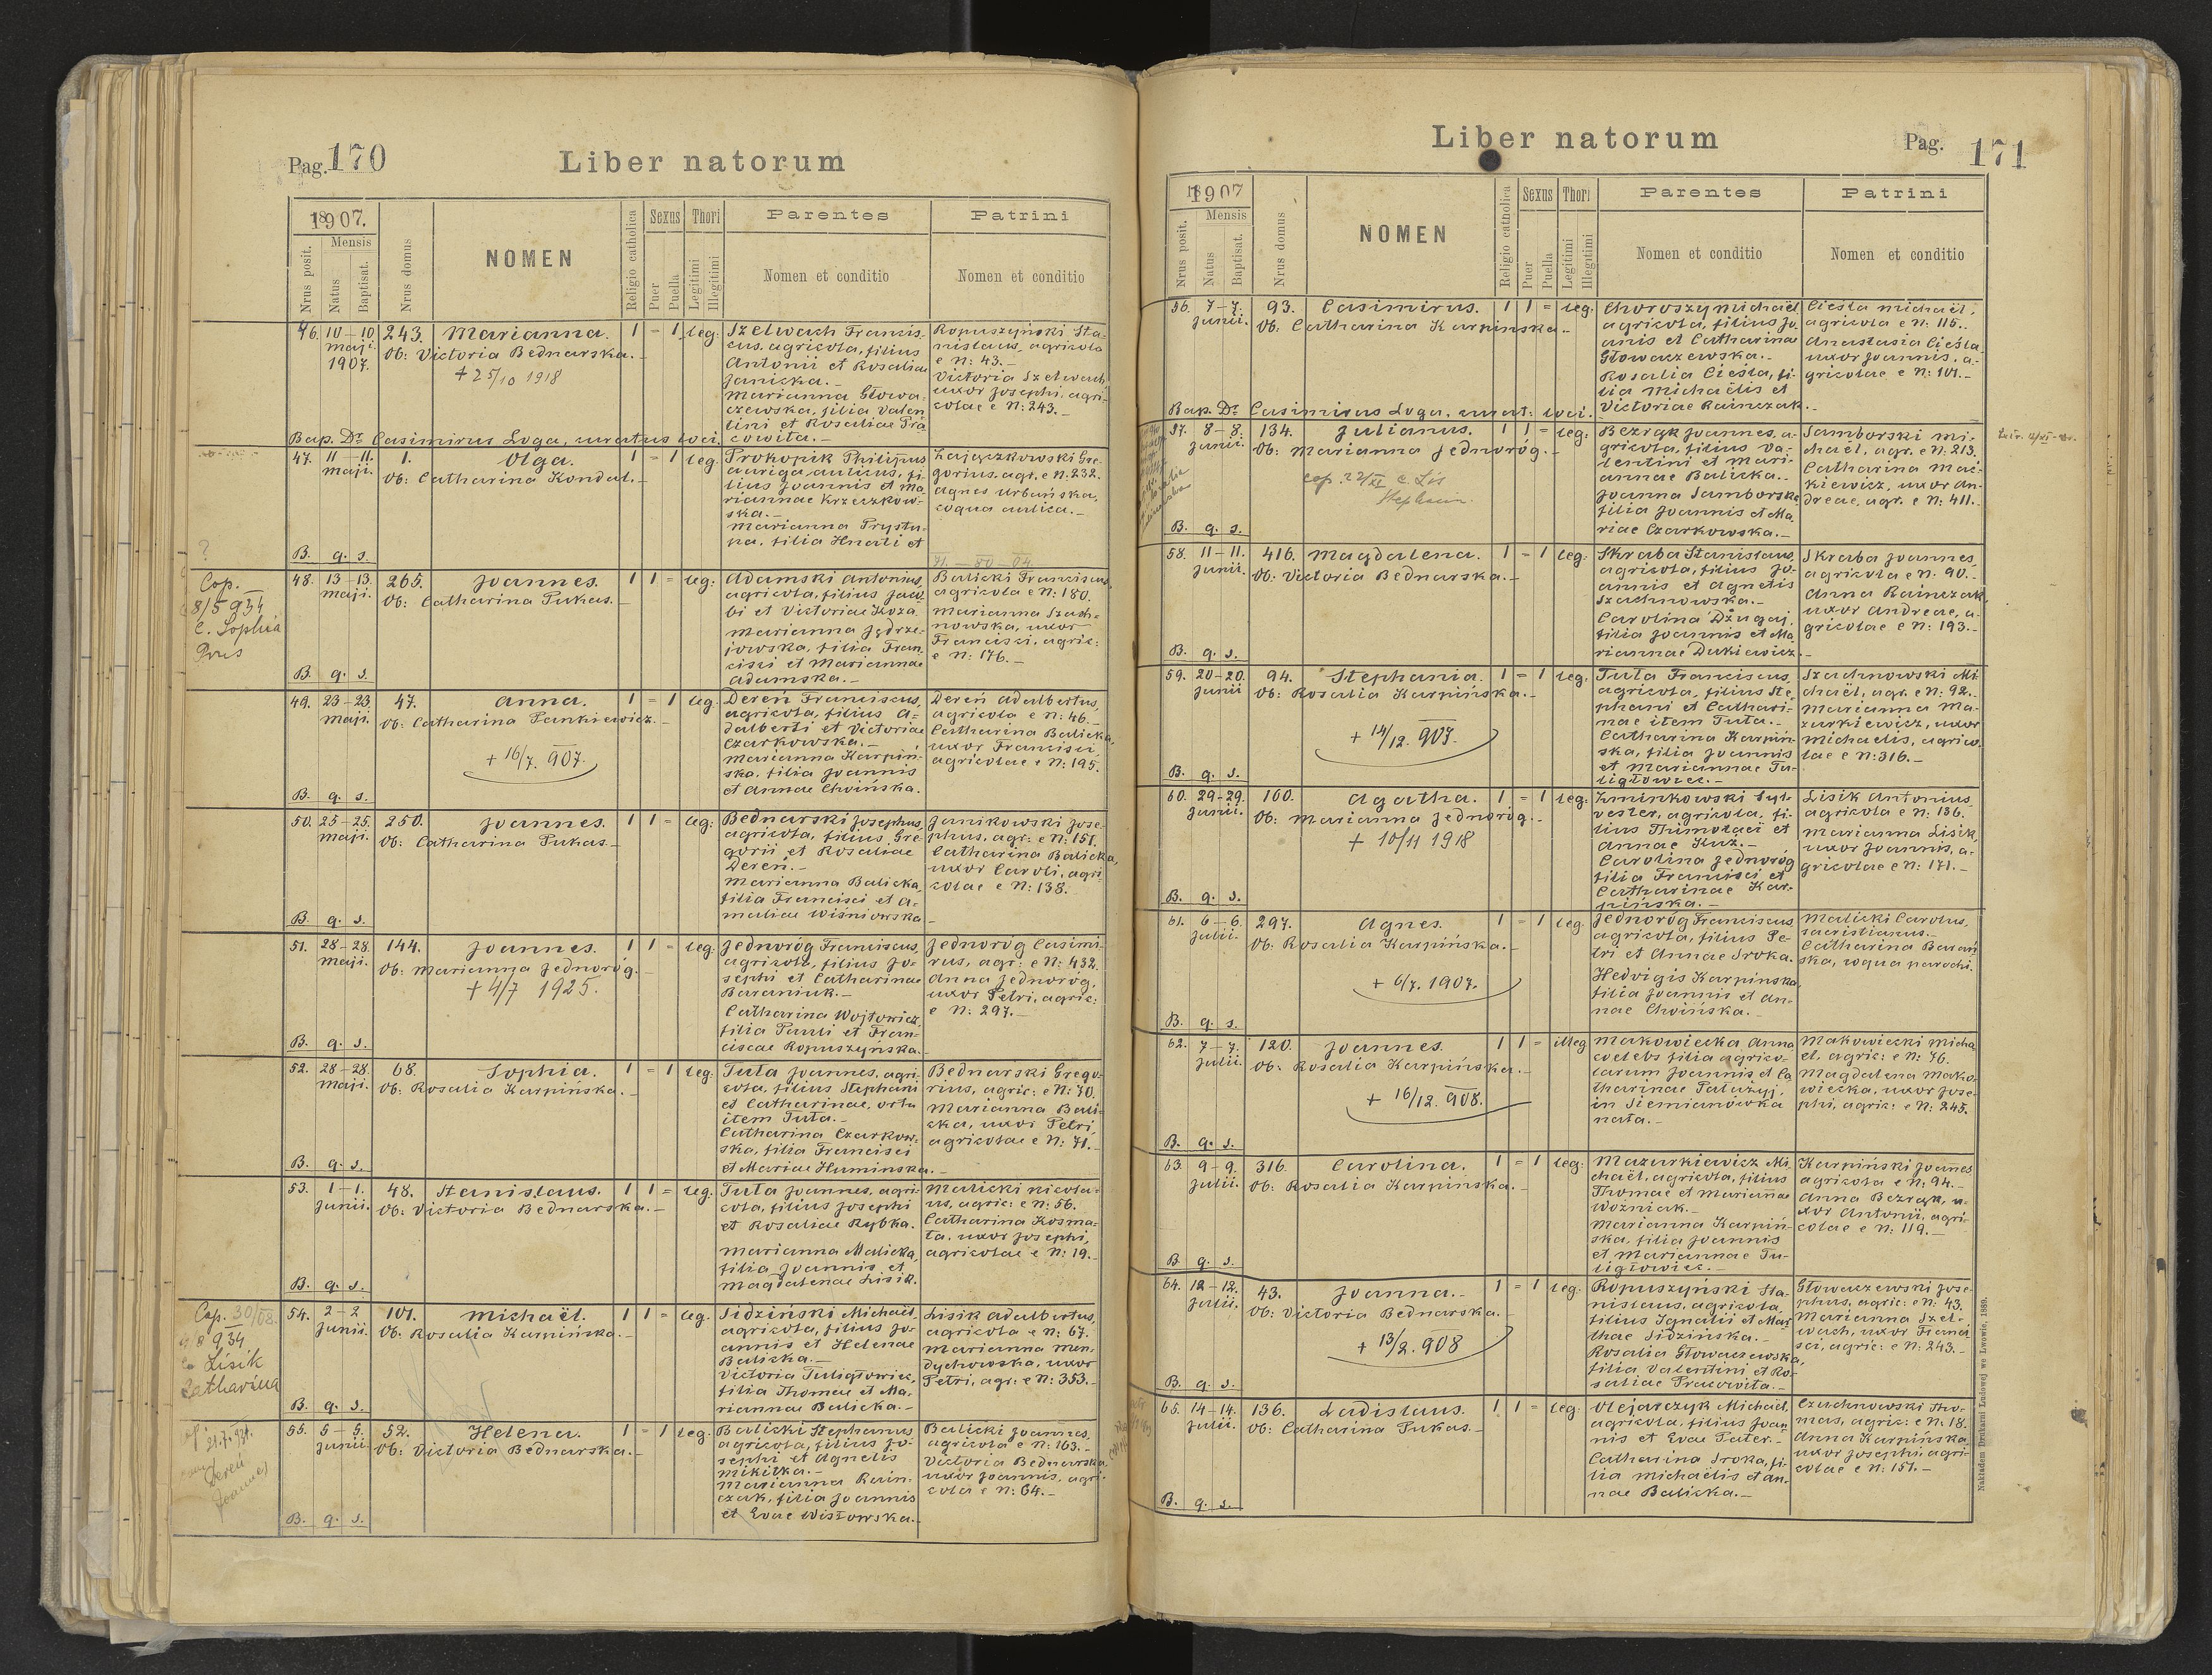 Pag. 170
Liber natorum
1907.
Nrus posit.
Mensis
Natus
Baptisat.
Nrus domus
NOMEN
Religio catholica
Sexus
Puer
Puella
Thori
Legitimi
Illegitimi
Parentes
Nomen et conditio
Patrini
Nomen et conditio
46. 10-10 maji 1907. 243. Marianna. 1 - 1 leg:
Ob: Victoria Bednarska.
+ 25/10 1918
Szelwach Francis-
cus, agricola, filius
Antonii et Rosaliae
Janicka.-
Marianna Głowa-
czewska, filia Valen
tini et Rosaliae Tra
cowita.-
Ropuszyński Sta-
nislaus, agricola
e N: 43.-
Victoria Szelwach,
uxor Josephi, agri-
colae e N: 243.-
Bap. Dr Casimirus Loga, curatus loci.
47. 11-11. maji. 1. Olga. 1 - 1 leg:
Ob: Catharina Kondal.-
Prokopik Philippus
auriga aulicus, fi-
lius Joannis et Ma
riannae Krzeczkow-
ska.-
Marianna Prystu-
pa, filia Hnati et
Zajączkowski Gre-
gorius, agr. e N: 232.
Agnes Urbańska,
coqua aulica.-
B. q. s.
?
Cop.
8/5 934
c. Sophia
48. 13-13. maji. 265. Joannes. 1 1 = leg:
Ob: Catharina Pukas.
Adamski Antonius,
agricola, filius Jaco
bi et Victoriae Koza
Marianna Jędrze-
jowska, filia Fran
cisci et Mariannae
Adamska.-
Balicki Franciscus,
agricola e N: 180.
Marianna Szach-
nowska, uxor
Francisci, agric:
e N: 176.-
B. q. s.
49. 23-23 maji. 47. Anna. 1 = 1 leg:
Ob: Catharina Pankiewicz.-
+ 16/7. 907.
Dereń Franciscus,
agricola, filius A=
dalberti et Victoriae
Czarkowska.-
Marianna Karpiń-
ska, filia Joannis
et Annae Chwińska.
Dereń Adalbertus,
agricola e N: 46.-
Catharina Balicka,
uxor Francisci
agricolae e N: 195.
B. q. s.
50. 25-25. maji. 250. Joannes. 1 1 = leg:
Ob: Catharina Pukas.-
Bednarski Josephus,
agricola, filius Gre
gorii et Rosaliae
Dereń.-
Marianna Balicka,
filia Francisci et A-
maliae Wiśniowska
Janikowski Jose-
phus, agr: e N: 151.
Catharina Balicka,
uxor Caroli, agri-
colae e N: 138.
B. q. s.
51. 28-28. maji. 144. Joannes. 1 1 = leg:
Ob: Marianna Jednoróg.-
+ 4/7 1925.
Jednoróg Franciscus,
agricola, filius Jo-
sephi et Catharinae
Baraniuk.-
Catharina Wojtowicz,
filia Pauli et Fran-
ciscae Ropuszyńska.
Jednoróg Casimi-
rus, agr: e N: 432.
Anna Jednoróg,
uxor Petri, agric:
e N: 297.-
B. q. s.
52. 28-28. maji. 68. Sophia. 1 = 1 leg:
Ob: Rosalia Karpińska.-
Tuta Joannes, agri
cola, filius Stephani
et Catharinae, orta
item Tuta.-
Catharina Czarkow-
ska, filia Francisci
et Mariae Huminska.-
Bednarski Grego-
rius, agric: e N: 70.
Marianna Bali-
cka, uxor Petri,
agricolae e N: 71.-
B. q. s.
53. 1-1. junii. 48. Stanislaus. 1 1 = leg:
Ob: Victoria Bednarska.-
Tuta Joannes, agri-
cola, filius Josephi
et Rosaliae Rybka.
Marianna Malicka,
filia Joannis et
Magdalenae Lisik.
Malicki Nicola-
us, agric: e N: 56.
Catharina Kosma-
ta, uxor Josephi,
agricolae e N: 19.-
B. q. s.
Cop. 30/
8 934
c. Lisik
Catharina
54. 2-2 junii. 101. Michaël. 1 1 = leg:
Ob: Rosalia Karpińska.-
Sidziński Michaël,
agricola, filius Jo-
annis et Helenae
Balicka.-
Victoria Tuligłowicz,
filia Thomae et Ma-
riannae Balicka.-
Lisik Adalbertus,
agricola e N: 67.
Marianna Men-
dychowska, uxor
Petri, agr: e N: 353.-
B. q. s.
21.7.931.
Dereń
Joannes
55. 5-5. junii. 52. Helena. 1 - 1 leg:
Ob: Victoria Bednarska.-
Balicki Stephanus
agricola, filius Jo-
sephi et Agnetis
Mikitka.-
Marianna Rain-
czak, filia Joannis
et Evae Wisłowska.-
Balicki Joannes
agricola e N: 163.-
Victoria Bednarska,
uxor Joannis, agri-
cola e N: 64.-
B. q. s.
Liber natorum
Pag. 171
1907
Nrus posit.
Mensis
Natus
Baptisat.
Nrus domus
NOMEN
Religio catholica
Sexus
Puer
Puella
Thori
Legitimi
Illegitimi
Parentes
Nomen et conditio
Patrini
Nomen et conditio
56. 7-7. junii. 93. Casimirus. 1 1 = leg:
Ob: Catharina Karpińska.-
Choroszy Michaël
agricola, filius Jo
anis et Catharinae
Głowaczewska.-
Rosalia Cieśla, fi-
lia Michaëlis et
Victoriae Rainczak.-
Cieśla Michaël,
agricola e N: 115.-
Anastasia Cieśla
uxor Joannis, a-
gricolae e N: 101.-
Bap. Dr Casimirus Loga, curat: loci.
57. 8-8. junii. 134. Julianus. 1 1 = leg:
Ob: Marianna Jednoróg.-
cop. 22/XI c. Lis
Stephania.
Bezrąk Joannes, a-
gricola, filius Va-
lentini et Mari-
annae Balicka.-
Joanna Samborska,
filia Joannis et Ma
riae Czarkowska.-
Samborski Mi-
chaël, agr. e N: 213.
Catharina Mac-
kiewicz, uxor An-
dreae, agr. e N: 411.
B. q. s.
58. 11-11. junii. 416. Magdalena. 1 - 1 leg:
Ob: Victoria Bednarska.-
Skraba Stanislaus,
agricola, filius Jo-
annis et Agnetis
Szachnowska.-
Carolina Dżugaj,
filia Joannis et Ma
riannae Dukiewicz.-
Skraba Joannes,
agricola e N: 90.-
Anna Rainczak,
uxor Andreae, a-
gricolae e N: 193.-
B. q. s.
59. 20-20. junii 94. Stephania. 1 = 1 leg:
Ob: Rosalia Karpińska.-
+ 14/12. 907.
Tuta Franciscus,
agricola, filius Ste-
phani et Cathari-
nae item Tuta.-
Catharina Karpiń-
ska, filia Joannis
et Mariannae Tu-
ligłowicz.-
Szachnowski Mi
chaël, agr. e N: 92.-
Marianna Ma-
zurkiewicz, uxor
Michaelis, agrico-
lae e N: 316.-
B. q. s.
60. 29-29. junii. 100. Agatha. 1 = 1 leg:
Ob: Marianna Jednoróg.-
+ 10/11 1918
Zminkowski Syl-
vester, agricola, fi-
lius Thimotaei et
Annae Kuz.-
Carolina Jednoróg
filia Francisci et
Catharinae Kar-
pińska.-
Lisik Antonius,
agricola e N: 136.
Marianna Lisik,
uxor Joannis, a-
gricolae e N: 171.-
B. q. s.
61. 6-6. julii. 297. Agnes. 1 - 1 leg:
Ob: Rosalia Karpińska.-
+ 6/7. 1907.
Jednoróg Franciscus
agricola, filius Pe-
tri et Annae Sroka.
Hedvigis Karpinska,
filia Joannis et An-
nae Chwińska.-
Malicki Carolus,
sacristianus.-
Catharina Barań
ska, coqua parochi.
B. q. s.
62. 7-7. julii. 120. Joannes. 1 1 = illeg
Ob: Rosalia Karpińska.-
+ 16/12. 908.
Makowiecka Anna
coelebs filia agrico-
larum Joannis et Ca
tharinae Tatużyj,
in Siemianówka
nata.-
Makowiecki Micha
el, agric: e N: 76.
Magdalena Mako-
wiecka, uxor Jose-
phi, agric: e N: 245.
B. q. s.
63. 9-9. julii. 316. Carolina. 1 = 1 leg:
Ob: Rosalia Karpinska.-
Mazurkiewicz Mi
chaël, agricola, filius
Thomae et Mariañae
Woźniak.-
Marianna Karpiń-
ska, filia Joannis
et Mariannae Tu-
ligłowicz.-
Karpiński Joannes
agricola e N: 94.-
Anna Bezrąk, u-
xor Antonii, agri-
colae e N: 119.-
B. q. s.
64. 12-12. julii. 43. Joanna.- 1 = 1 leg:
Ob: Victoria Bednarska.-
+ 13/2. 908
Ropuszyński Sta-
nislaus, agricola,
filius Ignatii et Mar
thae Sidzińska.-
Rosalia Głowaczewska,
filia Valentini et Ro-
saliae Pracowita.-
Głowaczewski Jose-
phus, agric: e N: 43.
Marianna Szel-
wach, uxor Franci
sci, agric: e N: 243.-
B. q. s.
65. 14-14. julii. 136. Ladislaus. 1 1 = leg:
Ob: Catharina Pukas.-
Olejarczyk Michaël,
agricola, filius Joan
nis et Evae Tater.-
Catharina Sroka, fi-
lia Michaëlis et An-
nae Balicka.-
Czuchnowski Tho-
mas, agric: e N: 18.
Anna Karpińska,
uxor Josephi, agri-
colae e N: 151.-
B. q. s.
Nakładem Drukarni Ludowej we Lwowie. 1889.